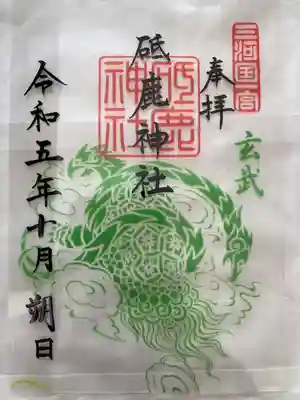 三河国一宮
奉拝
玄武
砥鹿神社
砥鹿神社
令和五年十月朔日